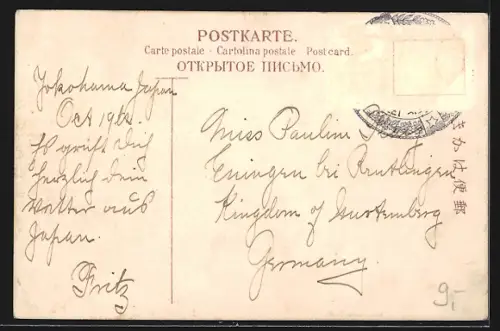 POSTKARTE.
Carte postale - Cartolina postale - Post card.
ОТКРЫТОЕ ПИСЬМО.
Yokohama Japan
Oct 1912.
Es grüßt Dich
herzlich Dein
Vetter aus
Japan.
Fritz
Miss Pauline
Eningen bei Reutlingen
Kingdom of Wurtemberg
Germany.
きかは便郵
9.-